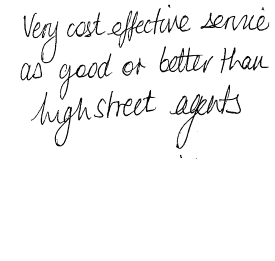 Very cost effective service
as good or better than
high street agents